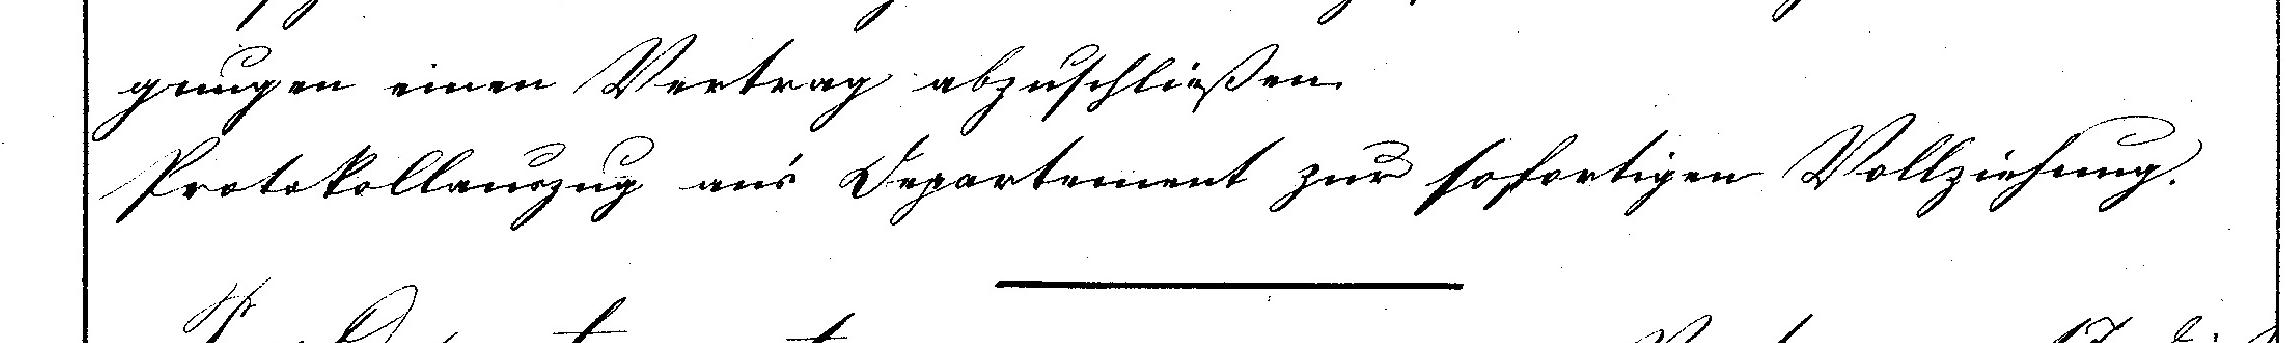 gungen einen Vertrag abzuschließen.
Protokollauszug an's Departement zur sofortigen Vollziehung.